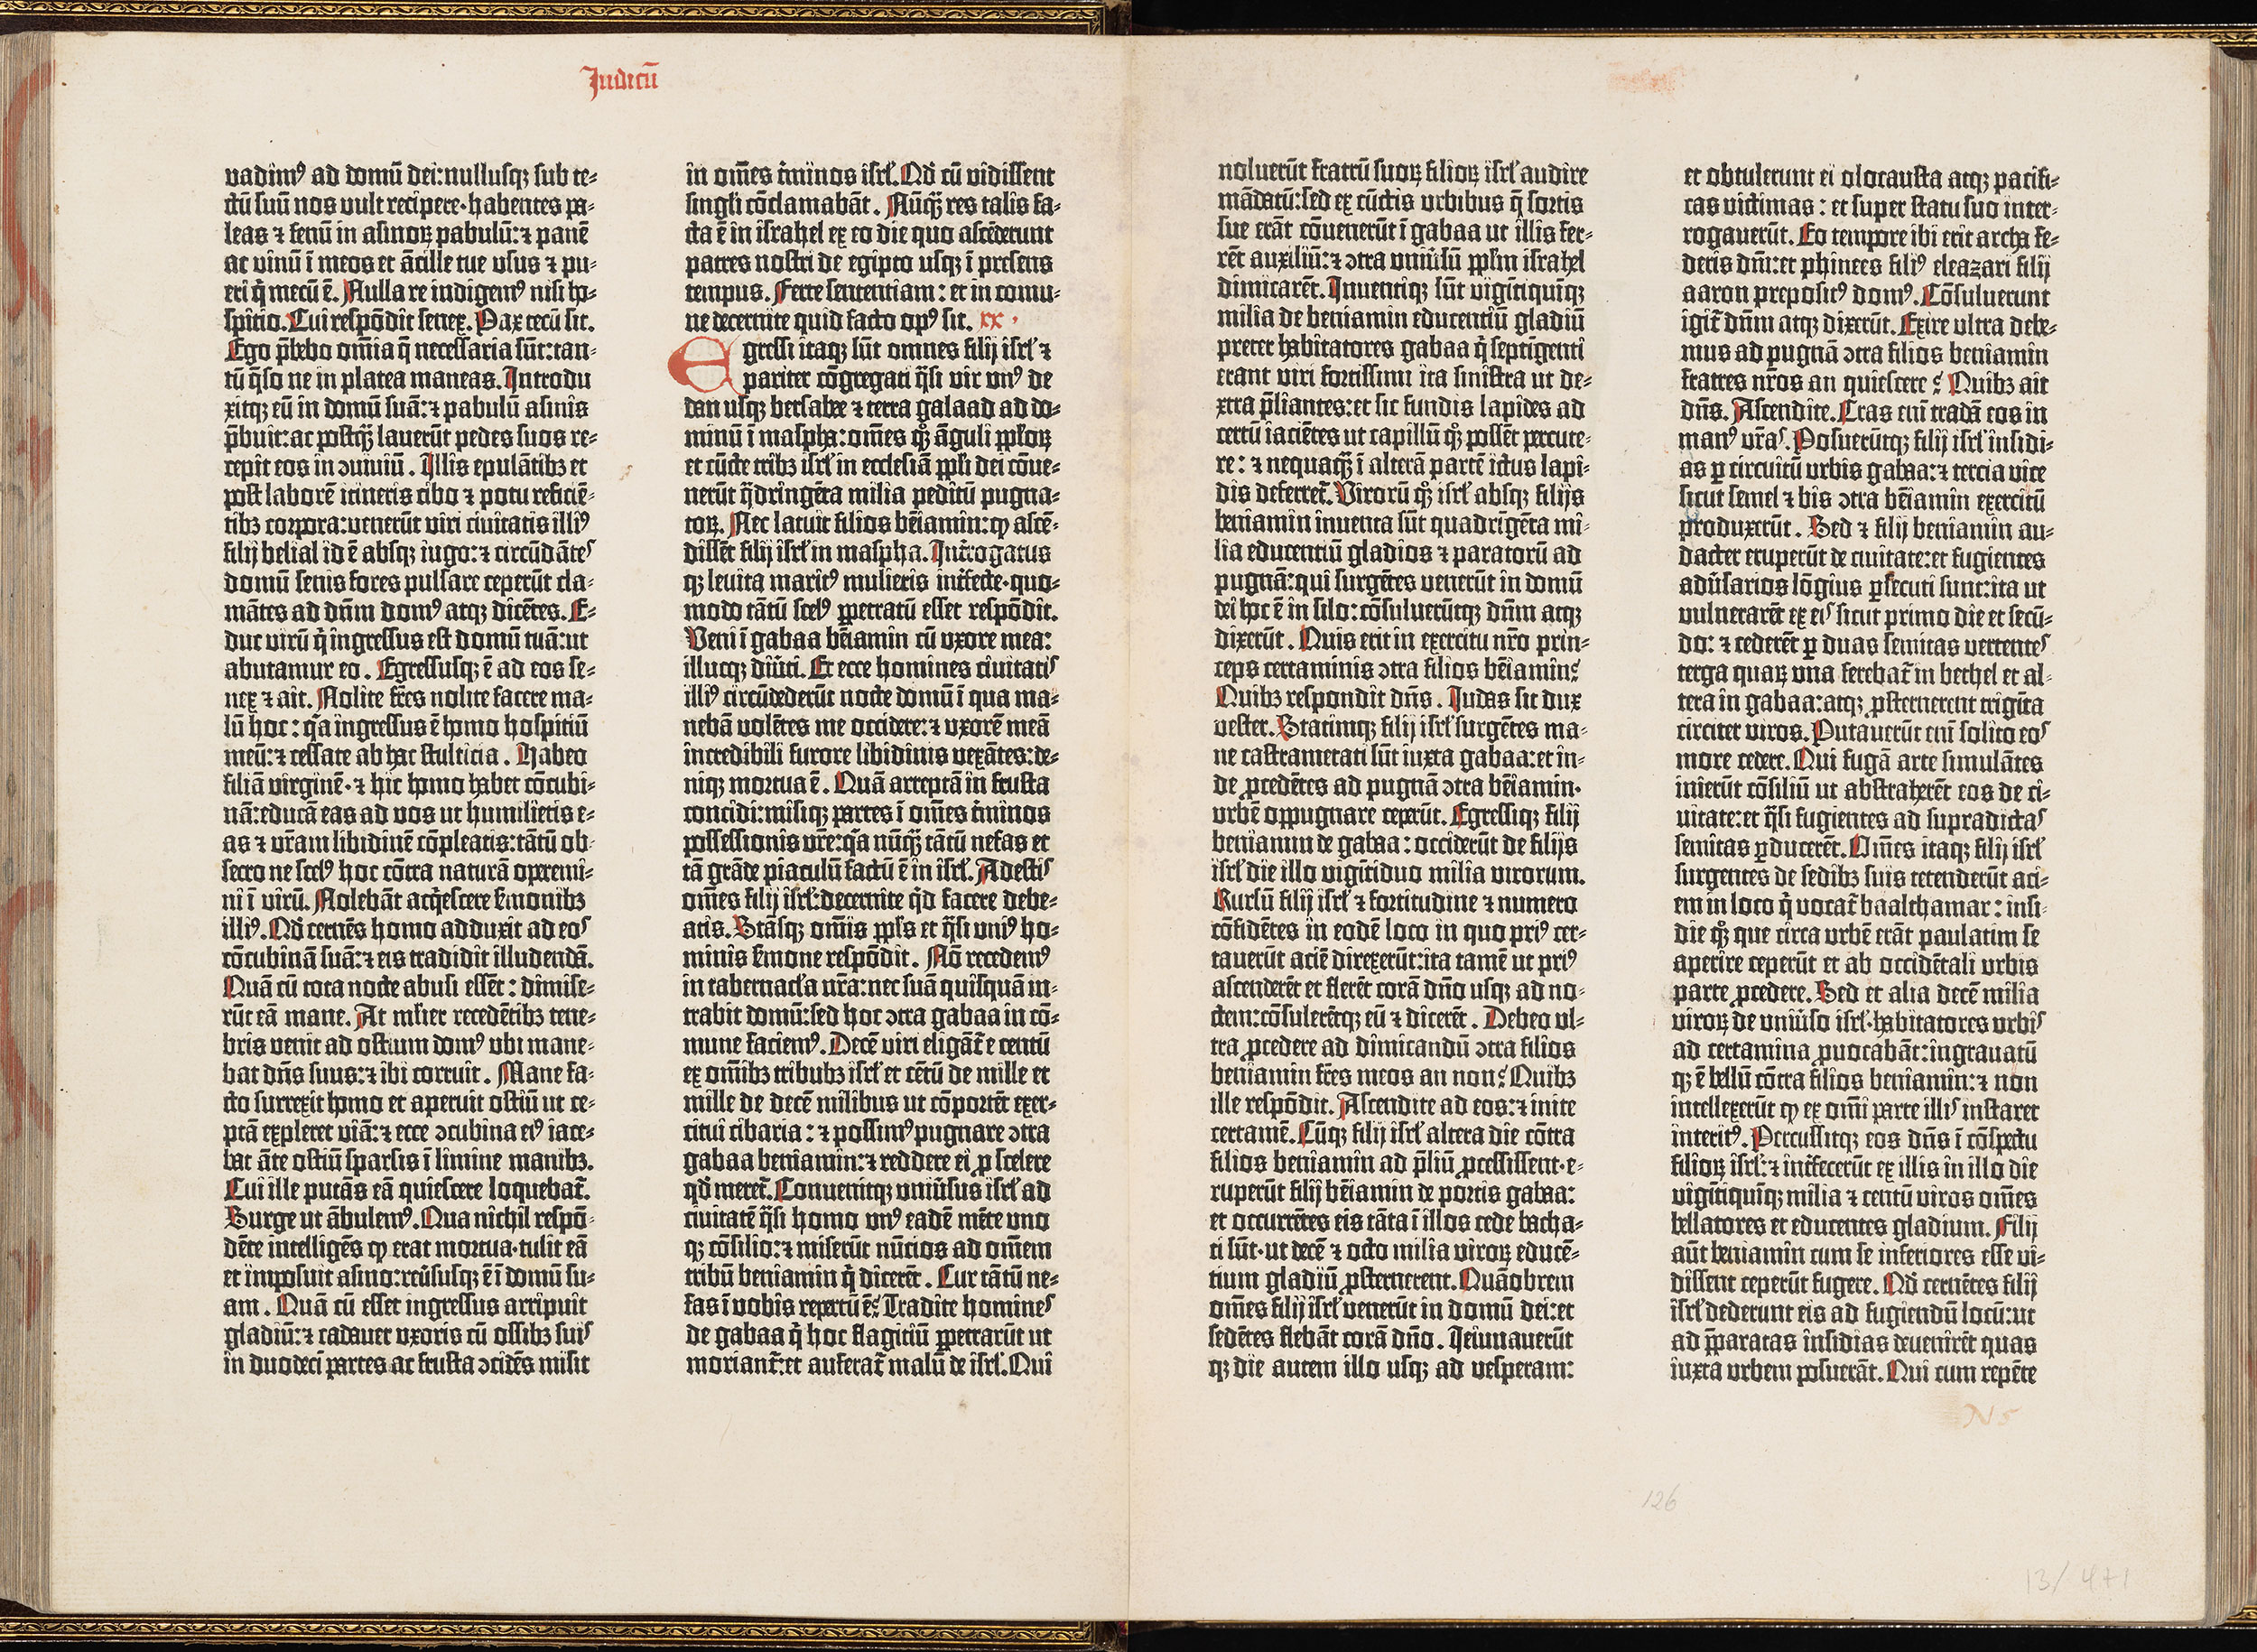 Judicū
vadim⁹ ad domū dei:nullusq; sub te-
ctū suū nos vult recipere·habentes pa-
leas ⁊ fenū in asinoꝝ pabulū:⁊ panē
ac vinū ī meos et ācille tue usus ⁊ pu-
eri q̇ mecū ē. Nulla re indigem⁹ nisi ho-
spitio. Cui respōdit senex. Pax tecū sit.
Ego p̄bebo om̄ia q̄ necessaria sūt:tan-
tū q̄so ne in platea maneas. Introdu
xitq; eū in domū suā:⁊ pabulū asinis
p̄buit:ac postq̄ꝫ lauerūt pedes suos re-
cepit eos in ↄuiuiū. Illis epulātibꝫ et
post laborē itineris cibo ⁊ potu reficiē-
tibꝫ corpora:venerūt viri ciuitatis illi⁹
filij belial id ē absq; iugo:⁊ circūdātes
domū senis fores pulsare ceperūt cla-
mātes ad dn̄m dom⁹ atq; dicētes. E-
duc virū q̇ ingressus est domū tuā:ut
abutamur eo. Egressusq; ē ad eos se-
nex ⁊ ait. Nolite fr̄es nolite facere ma-
lū hoc: q̄a ingressus ē homo hospitiū
meū:⁊ cessate ab hac stulticia. Habeo
filiā virginē·⁊ hic homo habet cōcubi-
nā:educā eas ad vos ut humilietis e-
as ⁊ vr̄am libidinē cōpleatis:tātū ob-
secro ne scel⁹ hoc cōtra naturā operemi-
ni ī virū. Nolebāt acq̇escere s̄monibꝫ
illi⁹. Qd̄ cernēs homo adduxit ad eos
cōcubinā suā:⁊ eis tradidit illudendā.
Quā cū tota nocte abusi essēt: dimise-
rūt eā mane. At ml̄ier recedētibꝫ tene-
bris venit ad ostium dom⁹ ubi mane-
bat dn̄s suus:⁊ ibi corruit. Mane fa-
cto surrexit homo et aperuit ostiū ut ce-
ptā expleret viā:⁊ ecce ↄcubina ei⁹ iace-
bat āte ostiū sparsis ī limine manibꝫ.
Cui ille putās eā quiescere loquebat᷑.
Surge ut ābulem⁹. Qua nichil respō-
dēte intelligēs ꝙ erat mortua·tulit eā
et imposuit asino:reūsusq; ē ī domū su-
am. Quā cū esset ingressus arripuit
gladiū:⁊ cadauer uxoris cū ossibꝫ suis
in duodeci partes ac frusta ↄcidēs misit
in om̄es t̄minos isrl̄. Qd̄ cū vidissent
singli cōclamabāt. Nūq̄ꝫ res talis fa-
cta ē in israhel ex eo die quo ascēderunt
patres nostri de egipto usq; ī presens
tempus. Ferte sententiam: et in comu-
ne decernite quid facto op⁹ sit. xx·
Egressi itaq; sūt omnes filij isrl̄ ⁊
pariter cōgregati q̄si vir un⁹ de
dan usq; bersabee ⁊ terra galaad ad do-
minū ī maspha:om̄es qꝫ āguli pploꝝ
et cūcte tribꝫ isrl̄ in ecclesiā ppl̄i dei cōue-
nerūt q̄dringēta milia peditū pugna-
toꝝ. Nec latuit filios bēiamin:ꝙ ascē-
dissēt filij isrl̄ in maspha. Int̄rogatus
q; leuita marit⁹ mulieris int̄fecte·quo-
modo tātū scel⁹ ꝑpetratū esset respōdit.
Veni ī gabaa bēiamin cū uxore mea:
illucq; diūti. Et ecce homines ciuitatis
illi⁹ circūdederūt nocte domū ī qua ma-
nebā volētes me occidere:⁊ uxorē meā
incredibili furore libidinis vexātes:de-
niq; mortua ē. Quā arreptā in frusta
concidi:misiq; partes ī om̄es t̄minos
possessionis vr̄e:q̄a nūq̄ꝫ tātū nefas et
tā grāde piaculū factū ē in isrl̄. Adestis
om̄es filij isrl̄:decernite q̇d facere debe-
atis. Stāsq; om̄is ppl̄s et q̄si uni⁹ ho-
minis s̄mone respōdit. Nō recedem⁹
in tabernacl̄a vr̄a:nec suā quisquā in-
trabit domū:sed hoc ↄtra gabaa in cō-
mune faciem⁹. Decē viri eligāt᷑ e centū
ex om̄ibꝫ tribubꝫ isrl̄ et cētū de mille et
mille de decē milibus ut cōportēt exer-
citui cibaria: ⁊ possim⁹ pugnare ↄtra
gabaa beniamin:⁊ reddere ei ꝓ scelere
qd̄ meret᷑. Conuenitq; uniūsus isrl̄ ad
ciuitatē q̄si homo un⁹ eadē mēte uno
q; cōsilio:⁊ miserūt nūcios ad om̄em
tribū beniamin q̇ dicerēt. Cur tātū ne-
fas ī vobis repertū ē? Tradite homines
de gabaa q̇ hoc flagitiū ꝑpetrarūt ut
moriant᷑:et auferat᷑ malū de isrl̄. Qui
noluerūt fratrū suoꝝ filioꝝ isrl̄ audire
mādatū:sed ex cūctis urbibus q̄ sortis
sue erāt cōuenerūt ī gabaa ut illis fer-
rēt auxiliū:⁊ ↄtra uniūsū ppl̄m israhel
dimicarēt. Inuentiq; sūt vigītiquīq;
milia de beniamin educentiū gladiū
preter habitatores gabaa q̇ septīgenti
erant viri fortissimi ita sinistra ut de-
xtra p̄liantes:et sic fundis lapides ad
certū iaciētes ut capillū qꝫ possēt percute-
re: ⁊ nequaq̄ꝫ ī alterā partē ictus lapi-
dis deferret᷑. Virorū qꝫ isrl̄ absq; filijs
beniamin inuenta sūt quadrīgēta mi-
lia educentiū gladios ⁊ paratorū ad
pugnā:qui surgētes venerūt in domū
dei hoc ē in silo:cōsuluerūtq; dn̄m atq;
dixerūt. Quis erit in exercitu nr̄o prin-
ceps certaminis ↄtra filios bēiamin?
Quibꝫ respondit dn̄s. Judas sit dux
vester. Statimq; filij isrl̄ surgētes ma-
ne castrametati sūt iuxta gabaa:et in-
de ꝓcedētes ad pugnā ↄtra bēiamin·
urbē oppugnare ceperūt. Egressiq; filij
beniamin de gabaa: occiderūt de filijs
isrl̄ die illo vigītiduo milia virorum.
Rursū filij isrl̄ ⁊ fortitudine ⁊ numero
cōfidētes in eodē loco in quo pri⁹ cer-
tauerūt aciē direxerūt:ita tamē ut pri⁹
ascenderēt et flerēt corā dn̄o usq; ad no-
ctem:cōsulerētq; eū ⁊ dicerēt. Debeo ul-
tra ꝓcedere ad dimicandū ↄtra filios
beniamin fr̄es meos an non? Quibꝫ
ille respōdit. Ascendite ad eos:⁊ inite
certamē. Cūq; filij isrl̄ altera die cōtra
filios beniamin ad p̄liū ꝓcessissent·e-
ruperūt filij bēiamin de portis gabaa:
et occurrētes eis tāta ī illos cede bacha-
ti sūt·ut decē ⁊ octo milia viroꝝ educē-
tium gladiū ꝓsternerent. Quāobrem
om̄es filij isrl̄ venerūt in domū dei:et
sedētes flebāt corā dn̄o. Jeiunauerūt
q; die autem illo usq; ad vesperam:
et obtulerunt ei olocausta atq; pacifi-
cas victimas: et super statu suo inter-
rogauerūt. Eo tempore ibi erit archa fe-
deris dn̄i:et phinees fili⁹ eleazari filij
aaron preposit⁹ dom⁹. Cōsuluerunt
igit᷑ dn̄m atq; dixerūt. Exire ultra debe-
mus ad pugnā ↄtra filios beniamin
fratres nr̄os an quiescere? Quibꝫ ait
dn̄s. Ascendite. Cras eni tradā eos in
man⁹ vr̄as. Posuerūtq; filij isrl̄ insidi-
as ꝑ circuitū urbis gabaa:⁊ tercia vice
sicut semel ⁊ bis ↄtra bēiamin exercitū
produxerūt. Sed ⁊ filij beniamin au-
dacter eruperūt de ciuitate:et fugientes
adūsarios lōgius ꝑsecuti sunt:ita ut
vulnerarēt ex eis sicut primo die et secū-
do: ⁊ cederēt ꝑ duas semitas vertentes
terga quaꝝ una ferebat᷑ in bethel et al-
tera in gabaa:atq; ꝓsternerent trigīta
circiter viros. Putauerūt eni solito eos
more cedere. Qui fugā arte simulātes
inierūt cōsiliū ut abstraherēt eos de ci-
uitate:et q̄si fugientes ad supradictas
semitas ꝑducerēt. Om̄es itaq; filij isrl̄
surgentes de sedibꝫ suis tetenderūt aci-
em in loco q̇ vocat᷑ baalthamar: insi-
die qꝫ que circa urbē erāt paulatim se
aperire ceperūt et ab occidētali urbis
parte ꝓcedere. Sed et alia decē milia
viroꝝ de uniūso isrl̄·habitatores urbis
ad certamina ꝓuocabāt:ingrauatū
q; ē bellū cōtra filios beniamin:⁊ non
intellexerūt ꝙ ex om̄i parte illis instaret
interit⁹. Percussitq; eos dn̄s ī cōspectu
filioꝝ isrl̄:⁊ int̄fecerūt ex illis in illo die
vigītiquīq; milia ⁊ centū viros om̄es
bellatores et educentes gladium. Filij
aūt beniamin cum se inferiores esse vi-
dissent ceperūt fugere. Qd̄ cernētes filij
isrl̄ dederunt eis ad fugiendū locū:ut
ad p̄paratas insidias deuenirēt quas
iuxta urbem posuerāt. Qui cum repēte
N 5
126
13/471